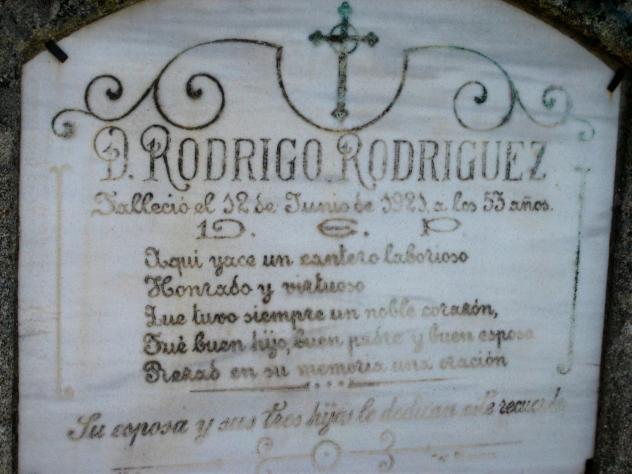 D. RODRIGO RODRIGUEZ
Falleció el 12 de Junio de 1921 a los 53 años.
D. E. P
Aqui yace un cantero laborioso
Honrado y virtuoso
Que tuvo siempre un noble corazón,
Fué buen hijo, buen padre y buen esposo
Rezad en su memoria una oración
Su esposa y sus tres hijas le dedican este recuerdo